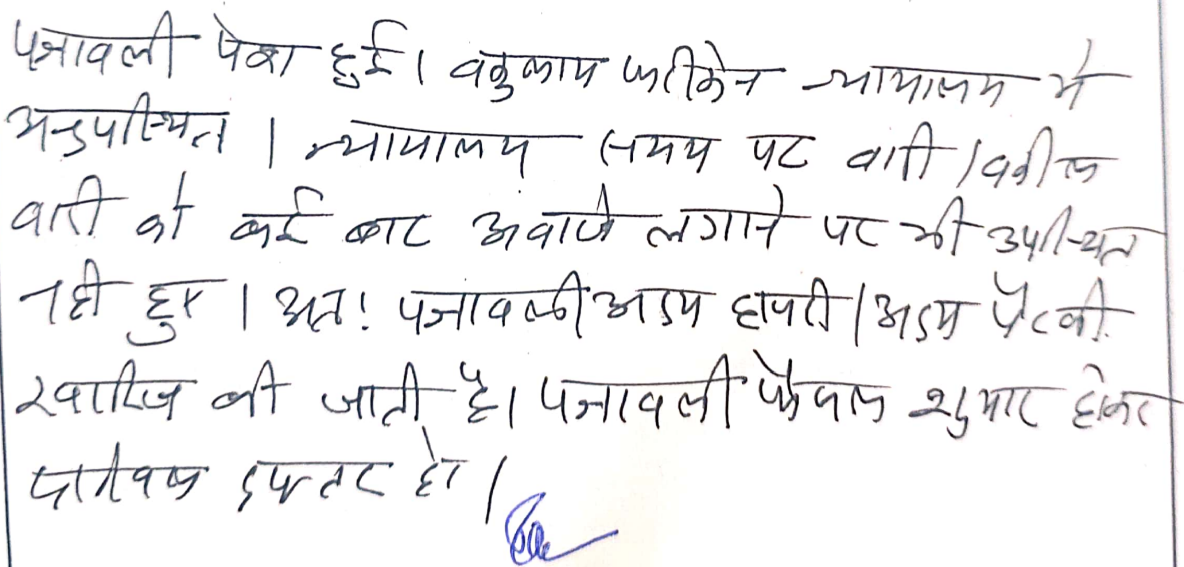 पत्रावली पेश हुई। वकुलाय फरीकेन न्यायालय में
अनुपस्थित । न्यायालय समय पर वादी / वकील
वादी को कई बार अवाजे लगाने पर भी उपस्थित
नही हुए । अतः पत्रावली अदम हाजरी / अदम पैरवी
खारिज की जाती है। पत्रावली फैसल शुमार होकर
दाखिल दफ्तर हो ।